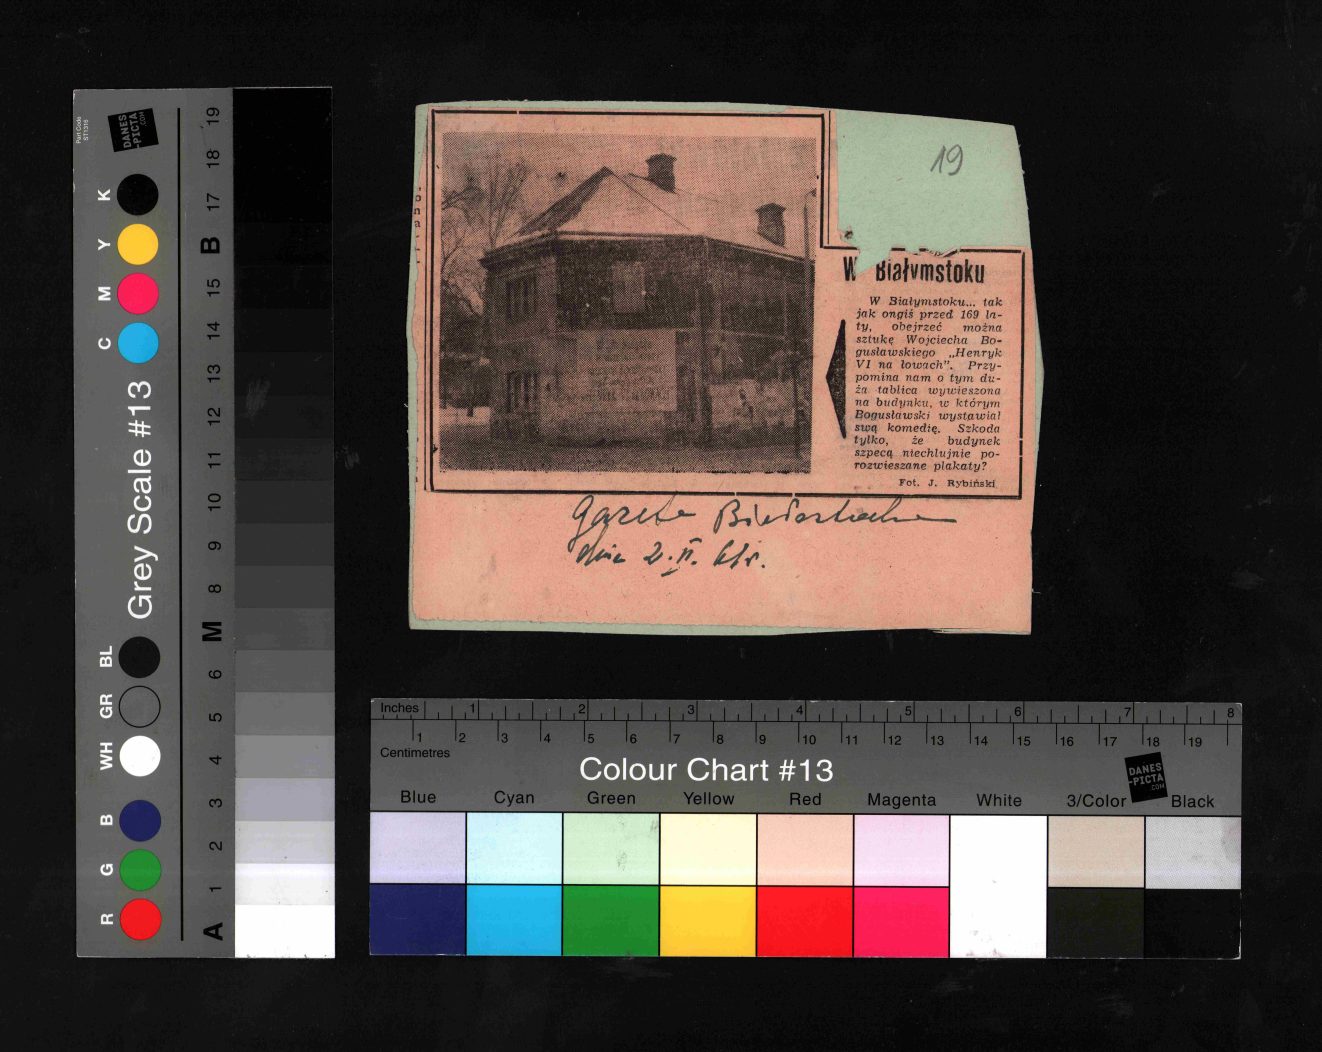 19
W Białymstoku
W Białymstoku... tak
jak ongiś przed 169 la-
ty, obejrzeć można
sztukę Wojciecha Bo-
gusławskiego „Henryk
VI na łowach". Przy-
pomina nam o tym du-
ża tablica wywieszona
na budynku, w którym
Bogusławski wystawiał
swą komedię. Szkoda
tylko, że budynek
szpecą niechlujnie po-
rozwieszane plakaty?
Fot. J. Rybiński
Gazeta Białostocka
dnia 2.II. 61r.
Part Code
ST1316
DANES
-PICTA
.COM
Grey Scale #13
K
Y
M
C
BL
GR
WH
B
G
R
19
18
17
B
15
14
13
12
11
10
9
8
M
6
5
4
3
2
1
A
Inches 1 2 3 4 5 6 7 8
1 2 3 4 5 6 7 8 9 10 11 12 13 14 15 16 17 18 19
Centimetres
Colour Chart #13
DANES
-PICTA
.COM
Blue Cyan Green Yellow Red Magenta White 3/Color Black